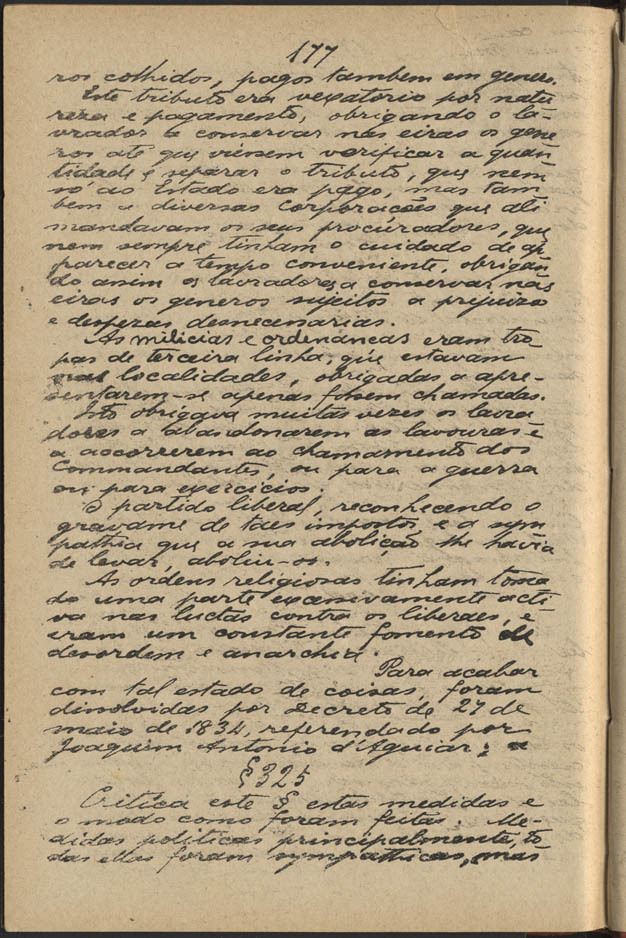 177
ros colhidos, pagos tambem em genero.
Este tributo era vexatorio por natu
reza e pagamento, obrigando o la-
vrador a conservar nas eiras os gene
ros até que viessem verificar a quan
tidade e separar o tributo, que nem
só ao Estado era pago, mas tam
bem a diversas corporações que ali
mandavam os seus procuradores, que
nem sempre tinham o cuidado de ap
parecer a tempo conveniente, obrigan
do assim os lavradores a conservar nas
eiras os generos sujeitos a prejuizo
e despezas desnecessarias.
As milicias e ordenanças eram tro-
pas de terceira linha, que estavam
nas localidades, obrigadas a apre-
sentarem-se apenas fossem chamadas.
Isto obrigava muitas vezes os lavra
dores a abandonarem as lavouras e
a accorrerem ao chamamento dos
Commandantes, ou para a guerra
ou para exercicios.
O partido liberal, reconhecendo o
gravame de taes impostos, e a sym
pathia que a sua abolição lhe havia
de levar, aboliu-os.
As ordens religiosas tinham toma
do uma parte excessivamente acti
va nas luctas contra os liberaes, e
eram um constante fomento de
desordem e anarchia.
Para acabar
com tal estado de coisas, foram
dissolvidas por Decreto de 27 de
maio de 1834, referendado por
Joaquim Antonio d'Aguiar;
§ 325
Critica este § estas medidas e
o modo como foram feitas. Me-
didas politicas principalmente, to
das ellas foram sympathicas, mas